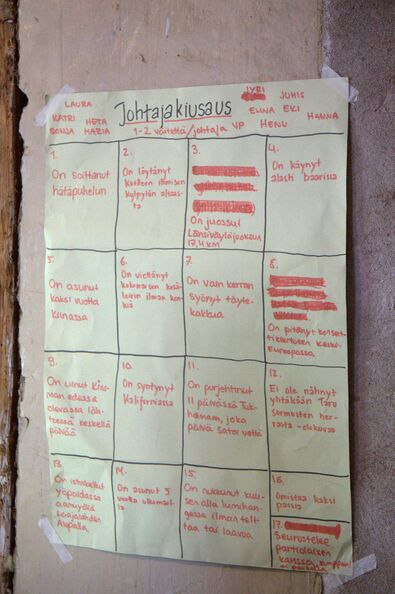 LAURA
JUHIS
KATRI HETA
Johtajakiusaus
EKI
HANNA
SONJA MARIA
1-2 väitettä/johtaja VP HENU
1.
On soittanut
hätäpuhelun
2.
On löytänyt
kuolleen ihmisen
kylpylän altaas-
ta
3.
On juossut
Länsiväyläjuoksun
17,4 km
4.
On käynyt
alasti baarissa
5.
On asunut
kaksi vuotta
Kiinassa
6.
On viettänyt
kokonaisen kesä-
leirin ilman ken-
kiä
7.
On vain kerran
syönyt täyte-
kakkua
8.
On pitänyt konsert-
tikiertueen Keski-
Euroopassa
9.
On uinut Kies-
man edessä
olevassa läh-
teessä keskellä
päivää
10.
On syntynyt
Kaliforniassa
11.
On purjehtinut
11 päivässä Tuk-
holmaan, joka
päivä satoi vettä
12.
Ei ole nähnyt
yhtäkään Taru
Sormusten her-
rasta -elokuvaa
13.
On istuskellut
yöpaidassa
aamuyöllä
Laajalahden
Alepalla
14.
On asunut 5
vuotta ulkomail-
la
15.
On nukkunut kuu-
sen alla lumihan-
gessa ilman telt-
taa tai laavua
16.
Omistaa kaksi
paitaa
17.
Seurustelee
partiolaisen
kanssa